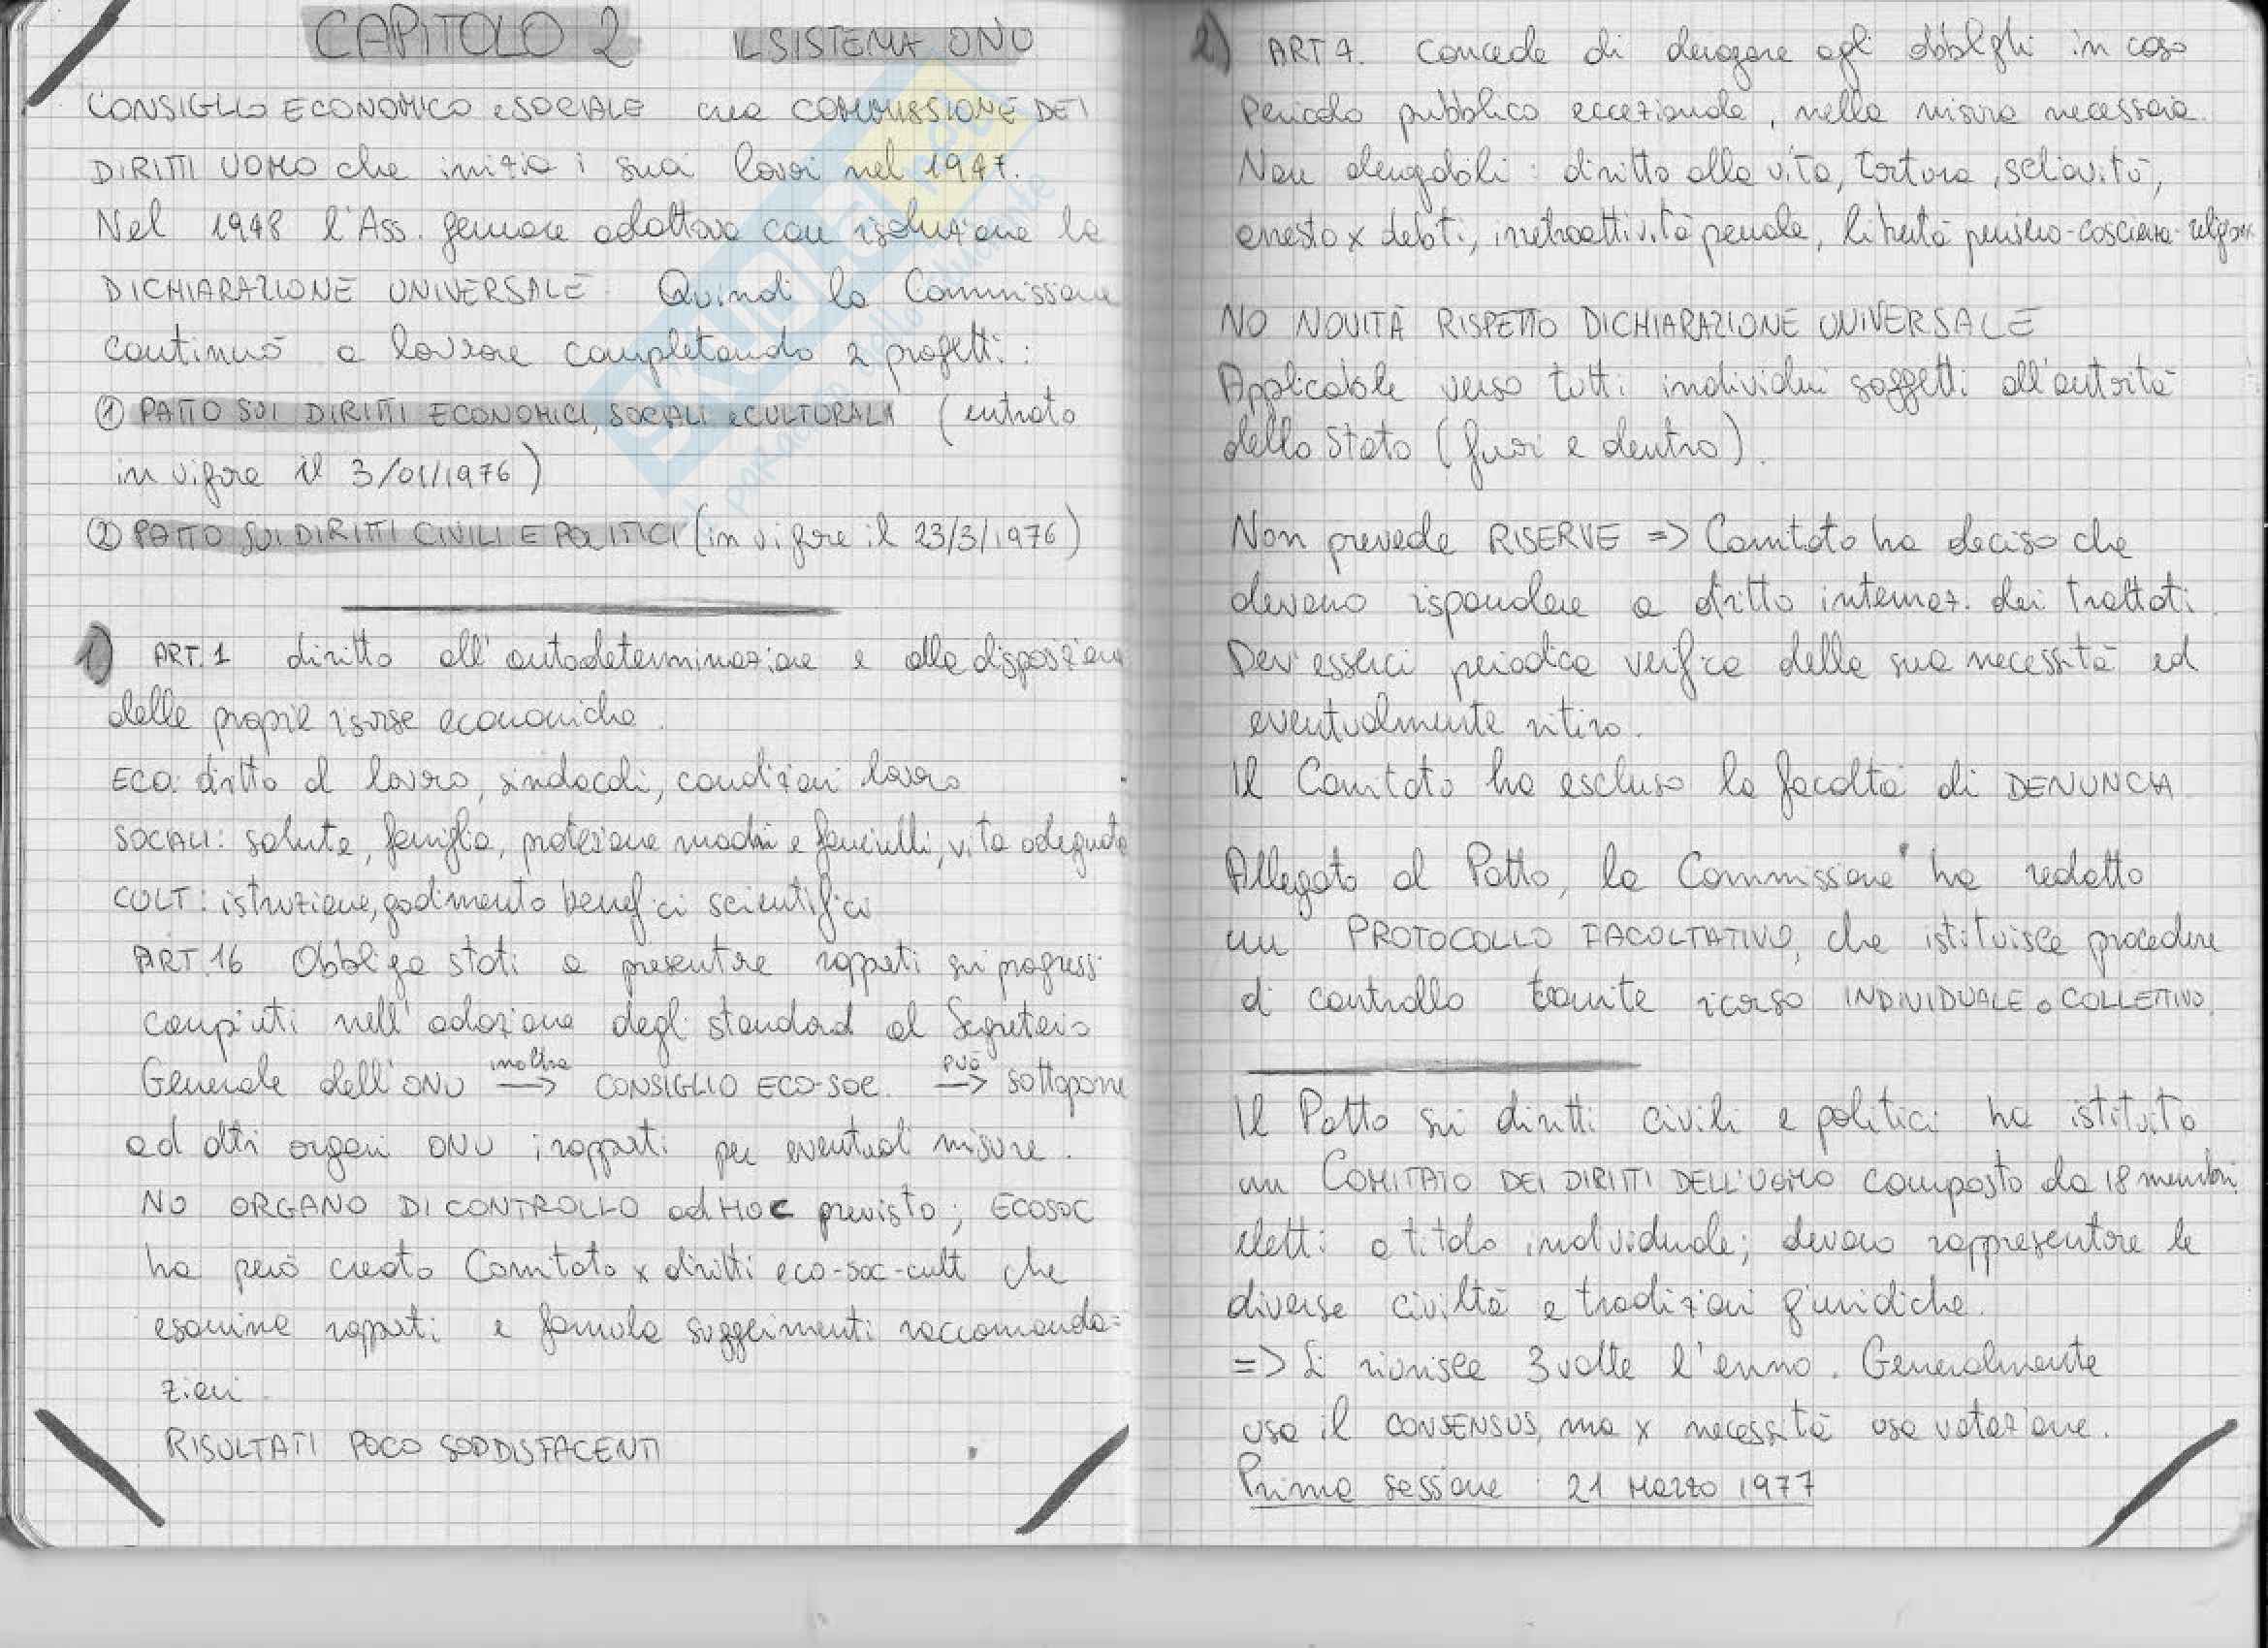 CAPITOLO 2 IL SISTEMA ONU
CONSIGLIO ECONOMICO e SOCIALE crea COMMISSIONE DEI
DIRITTI UOMO che inizia i suoi lavori nel 1947.
Nel 1948 l'Ass. generale adottava con risoluzione la
DICHIARAZIONE UNIVERSALE. Quindi la Commissione
continuò a lavorare completando 2 progetti:
① PATTO SUI DIRITTI ECONOMICI, SOCIALI e CULTURALI (entrato
in vigore il 3/01/1976)
② PATTO SUI DIRITTI CIVILI E POLITICI (in vigore il 23/3/1976)
1) ART.1 diritto all'autodeterminazione e alla disposizione
delle proprie risorse economiche.
ECO: diritto al lavoro, sindacali, condizioni lavoro
SOCIALI: salute, famiglia, protezione madri e fanciulli, vita adeguata
CULT: istruzione, godimento benefici scientifici
ART.16 Obbliga stati a presentare rapporti sui progressi
compiuti nell'adozione degli standard al Segretario
Generale dell'ONU inoltra → CONSIGLIO ECO-SOC. PUÒ → sottoporre
ad altri organi ONU i rapporti per eventuali misure.
NO ORGANO DI CONTROLLO ad HOC previsto; ECOSOC
ha però creato Comitato x diritti eco-soc-cult che
esamina rapporti e formula suggerimenti raccomanda=
zioni.
RISULTATI POCO SODDISFACENTI
2) ART 4. Concede di derogare agli obblighi in caso
Pericolo pubblico eccezionale, nella misura necessaria.
Non derogabili: diritto alla vita, tortura, schiavitù,
arresto x debiti, irretroattività penale, libertà pensiero-coscienza-religione
NO NOVITÀ RISPETTO DICHIARAZIONE UNIVERSALE
Applicabile verso tutti individui soggetti all'autorità
dello Stato (fuori e dentro).
Non prevede RISERVE => Comitato ha deciso che
devono rispondere a diritto internaz. dei trattati.
Dev'esserci periodica verifica della sua necessità ed
eventualmente ritiro.
Il Comitato ha escluso la facoltà di DENUNCIA
Allegato al Patto, la Commissione ha redatto
un PROTOCOLLO FACOLTATIVO, che istituisce procedure
di controllo tramite ricorso INDIVIDUALE o COLLETTIVO.
Il Patto sui diritti civili e politici ha istituito
un COMITATO DEI DIRITTI DELL'UOMO composto da 18 membri
eletti a titolo individuale; devono rappresentare le
diverse civiltà e tradizioni giuridiche.
=> Si riunisce 3 volte l'anno. Generalmente
usa il CONSENSUS, ma x necessità usa votazione.
Prima sessione: 21 Marzo 1977